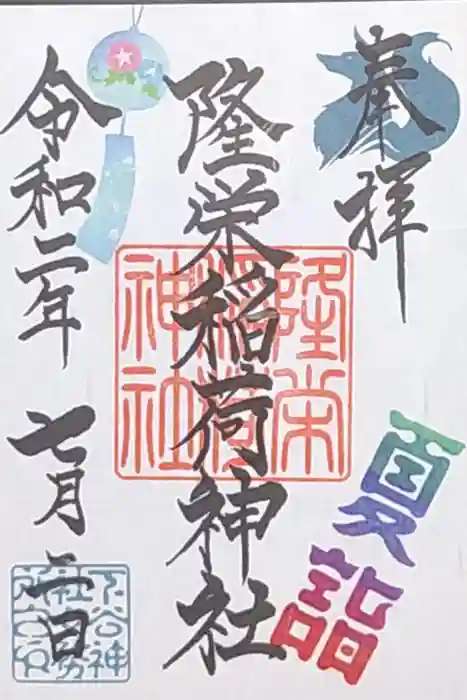 奉拝
夏詣
隆栄稲荷神社
隆栄稲荷神社
令和二年
七月二日
下谷神
社社務
所之印